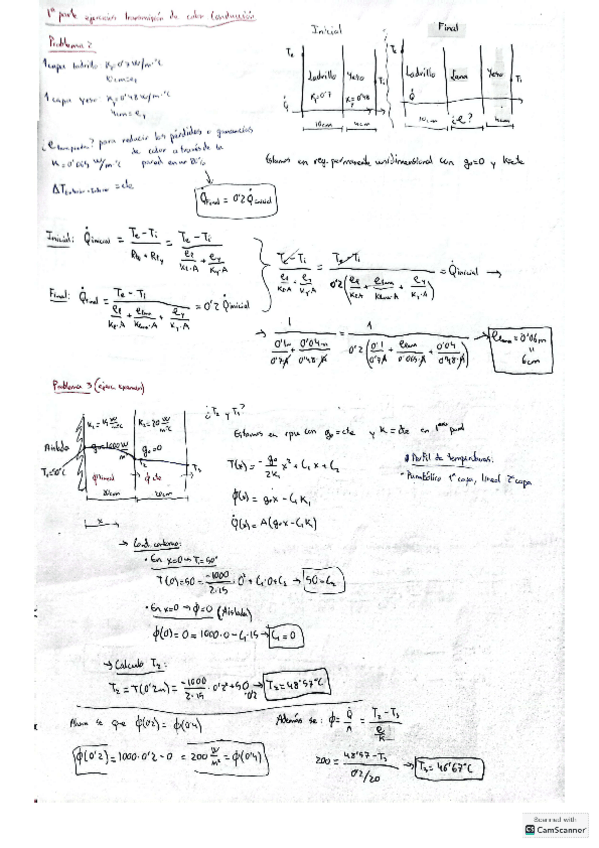 1ª parte ejercicios transmisión de calor Conducción
Problema 2
1 capa ladrillo K=0'7 W/m·ºC
10cm=e
1 capa yeso Ky=0'48 W/m·ºC
4cm=ey
¿e para reducir las pérdidas o ganancias
de calor a través de la
K=0'065 W/m·ºC pared en un 80%
ΔT = cte
Q̇final = 0'2 Q̇inicial
Inicial
Final
Te
Ladrillo
Yeso
Ti
K=0'7
K=0'48
Q̇
10cm
4cm
Te
Ladrillo
Lana
Yeso
Ti
Q̇
10cm
¿e?
4cm
Estamos en reg. permanente unidimensional con g0=0 y K=cte
Inicial: Q̇inicial = (Te-Ti)/(Rte+Rty) = (Te-Ti)/(el/(Kl·A) + ey/(Ky·A))
Final: Q̇final = (Te-Ti)/(el/(Kl·A) + elana/(Klana·A) + ey/(Ky·A)) = 0'2 Q̇inicial
(Te-Ti)/(el/(Kl·A) + ey/(Ky·A)) = (Te-Ti)/(0'2(el/(Kl·A) + elana/(Klana·A) + ey/(Ky·A))) = Q̇inicial →
→ 1/(0'1m/(0'7·A) + 0'04m/(0'48·A)) = 1/(0'2(0'1/(0'7·A) + elana/(0'065·A) + 0'04/(0'48·A))) → elana = 0'06m = 6cm
Problema 3 (ejerc examen)
K1=15 W/mºC
K2=20 W/mºC
Aislado
g0=1000 W/m
g0=0
T1=50ºC
T2
T3
ϕ lineal
ϕ cte
20cm
20cm
x
¿T2 y T3?
Estamos en rpu con g0=cte y K=cte en 1ª pared
T(x) = -g0/(2K1) x² + C1x + C2
ϕ(x) = g0x - C1K1
Q̇(x) = A(g0x - C1K)
Perfil de temperaturas:
- Parabólico 1ª capa, lineal 2ª capa
→ Cond. contorno:
· En x=0 → T=50º
T(0)=50 = -1000/(2·15) · 0² + C1·0 + C2 → 50=C2
· En x=0 → ϕ=0 (Aislado)
ϕ(0)=0 = 1000·0 - C1·15 → C1=0
→ Cálculo T2:
T2 = T(0'2m) = -1000/(2·15) · 0'2² + 50 → T2=48'57ºC
0'2
Ahora se que ϕ(0'2) = ϕ(0'4)
Además se: ϕ = Q̇/A = (T2-T3)/(e/K)
ϕ(0'2) = 1000·0'2 - 0 = 200 W/m² = ϕ(0'4)
200 = (48'57-T3)/(0'2/20) → T3=46'67ºC
Scanned with
CS CamScanner